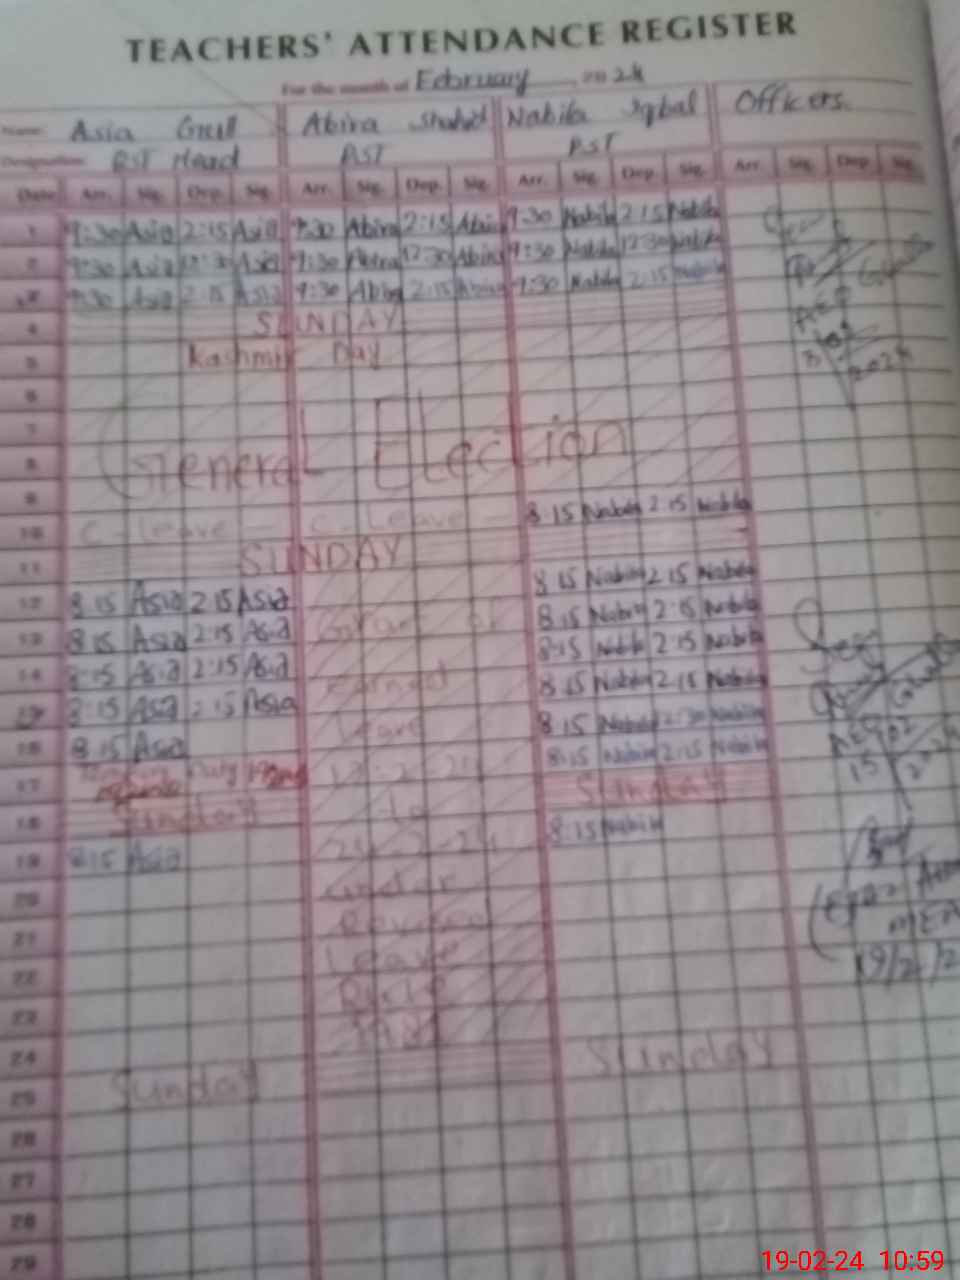 TEACHERS' ATTENDANCE REGISTER
For the month of February 2024
Name: Asia Gull Abira Shahid Nabila Iqbal Officers.
Designation PST Head PST PST
Date Arr. Sig. Dep. Sig. Arr. Sig. Dep. Sig. Arr. Sig. Dep. Sig. Arr. Sig. Dep. Sig.
1 9:30 Asia 2:15 Asia 9:30 Abira 2:15 Abira 9:30 Nabila 2:15 Nabila
2 9:30 Asia 12:30 Asia 9:30 Abira 12:30 Abira 9:30 Nabila 12:30 Nabila
3 9:30 Asia 2:15 Asia 9:30 Abira 2:15 Abira 9:30 Nabila 2:15 Nabila
4 SUNDAY
5 Kashmir Day
6
7
8 General Election
9
10 C-leave - C-Leave - 8:15 Nabila 2:15 Nabila
11 SUNDAY
12 8:15 Asia 2:15 Asia 8:15 Nabila 2:15 Nabila
13 8:15 Asia 2:15 Asia Grant of 8:15 Nabila 2:15 Nabila
14 8:15 Asia 2:15 Asia Earned 8:15 Nabila 2:15 Nabila
15 8:15 Asia 2:15 Asia Leave 8:15 Nabila 2:15 Nabila
16 8:15 Asia 8:15 Nabila 12:30 Nabila
17 Duty to 8:15 Nabila 2:15 Nabila
18 Sunday Sunday
19 8:15 Asia 24-2-24 8:15 Nabila
20 under
21 Revised
22 Leave
23 Rule
24
25 Sunday Sunday
26
27
28
29
Seen
AEO
2024
Seen
AEO
15
19/2/2
19-02-24 10:59